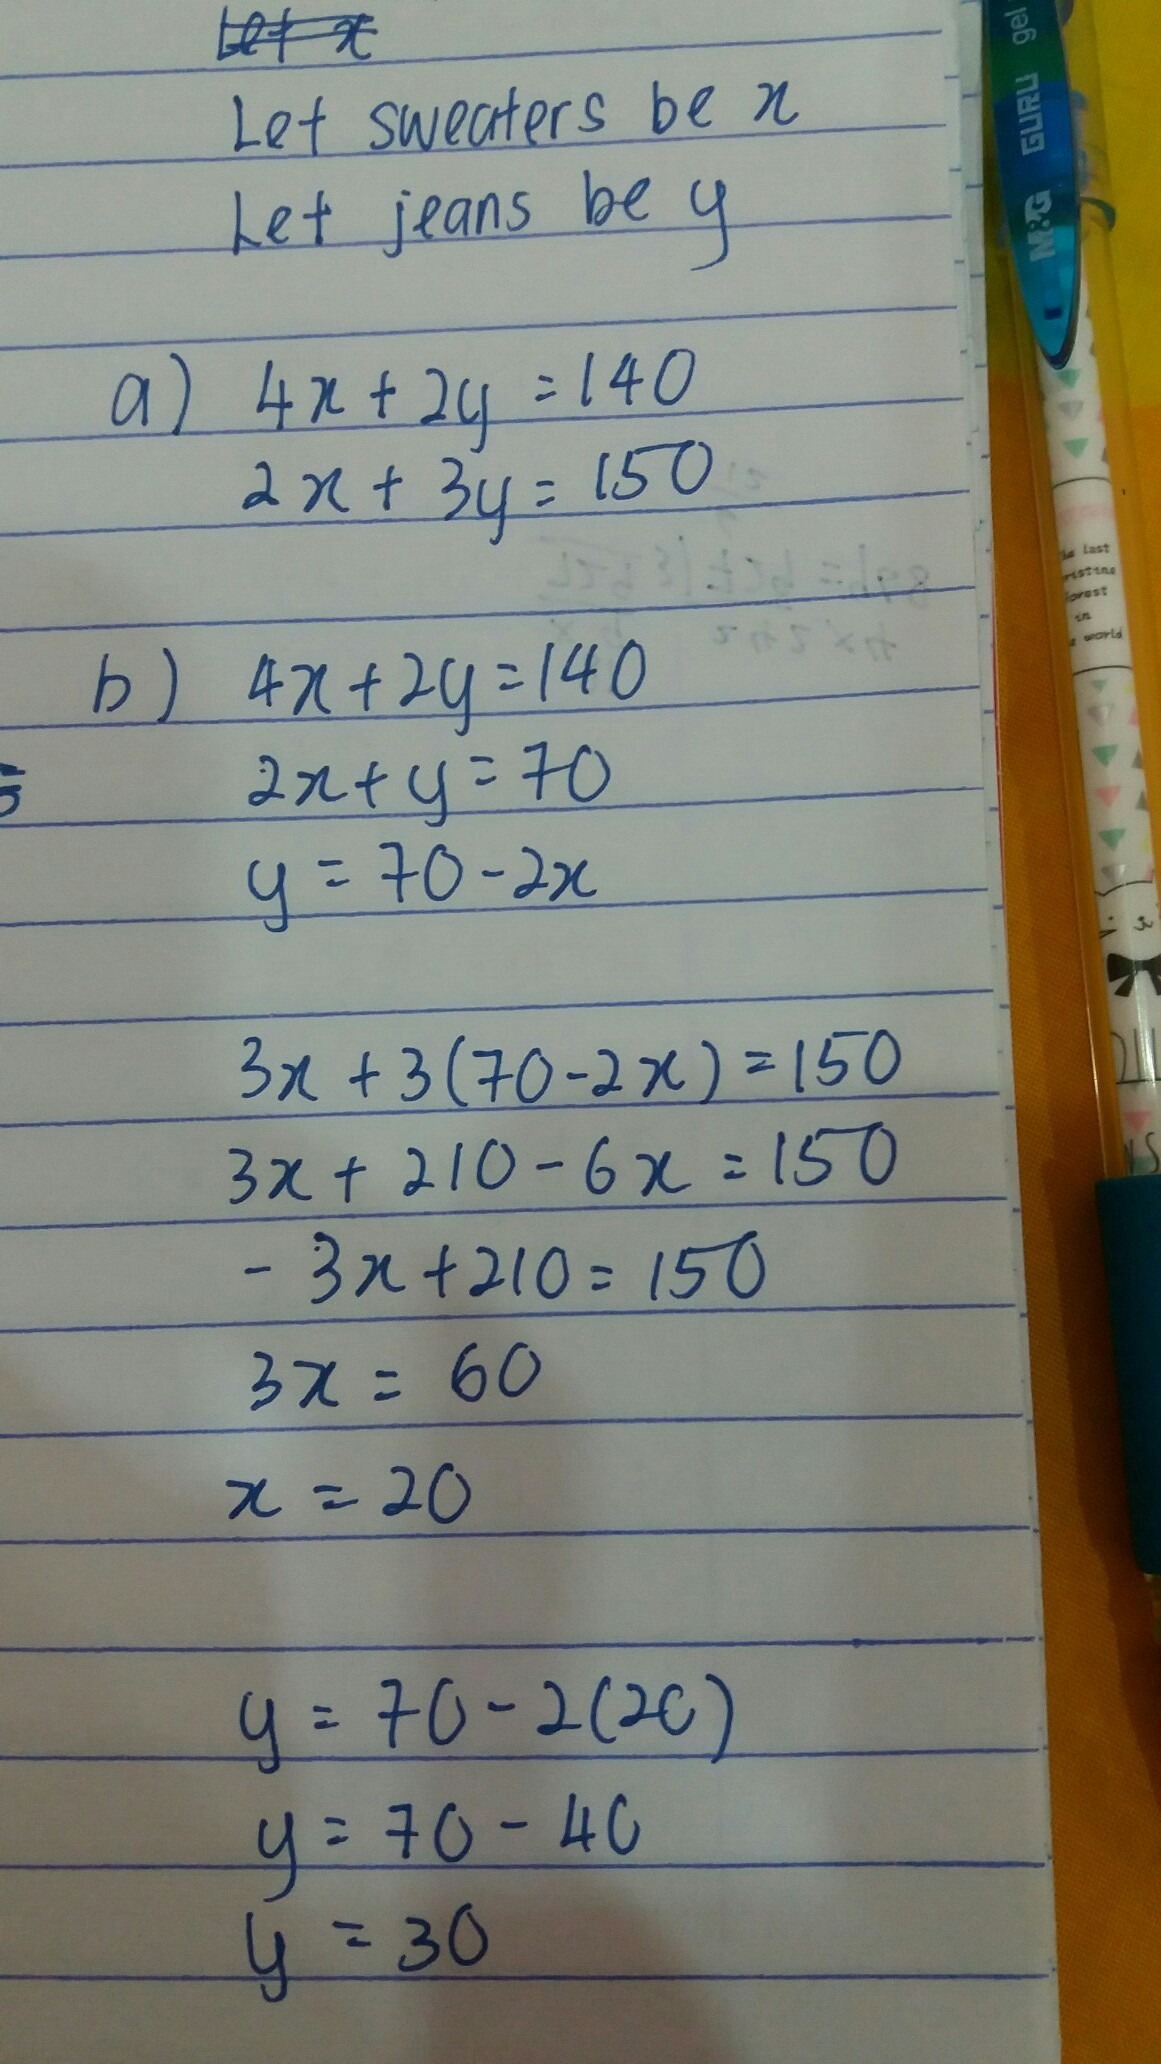 Let x
Let sweaters be x
Let jeans be y
a) 4x + 2y = 140
2x + 3y = 150
b) 4x + 2y = 140
2x + y = 70
y = 70 - 2x
3x + 3(70 - 2x) = 150
3x + 210 - 6x = 150
- 3x + 210 = 150
3x = 60
x = 20
y = 70 - 2(20)
y = 70 - 40
y = 30
M&G GURU gel
last
in
world